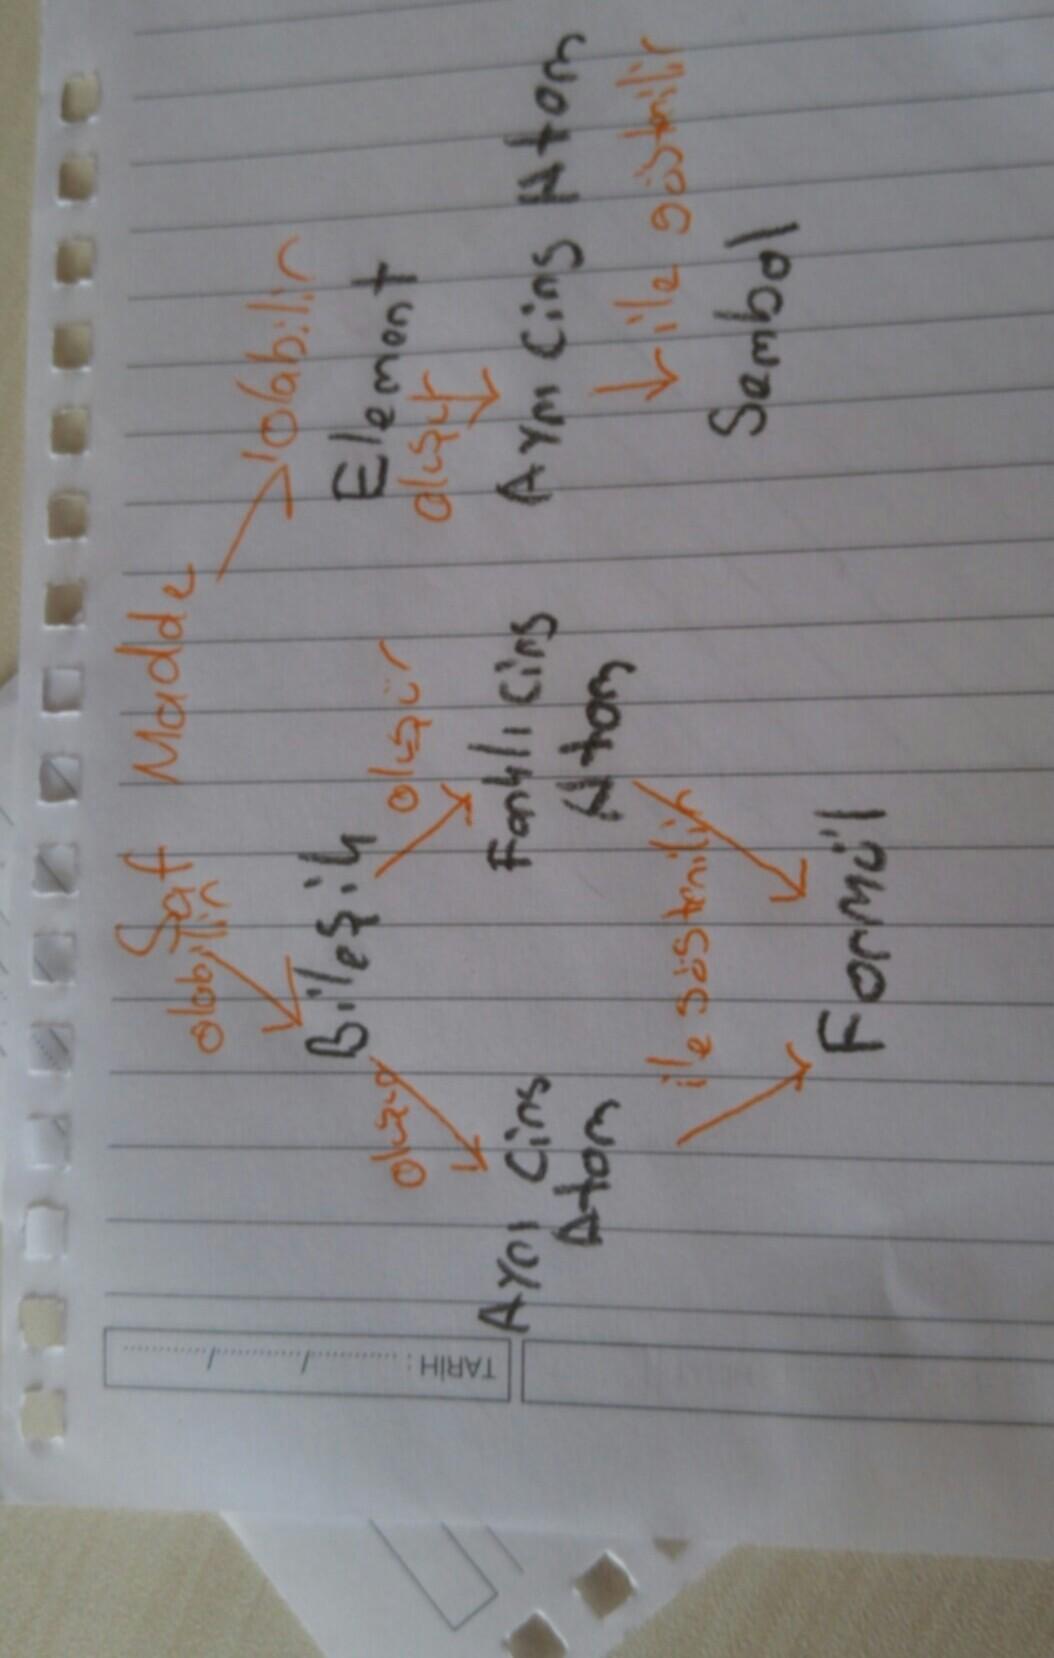 Saf Madde
olabilir
olabilir
Bileşik
Element
oluşur
oluşur
oluşur
Aynı Cins
Atom
Farklı Cins
Atom
Aynı Cins Atom
ile gösterilir
ile gösterilir
Formül
Sembol
TARİH : ............/............/............